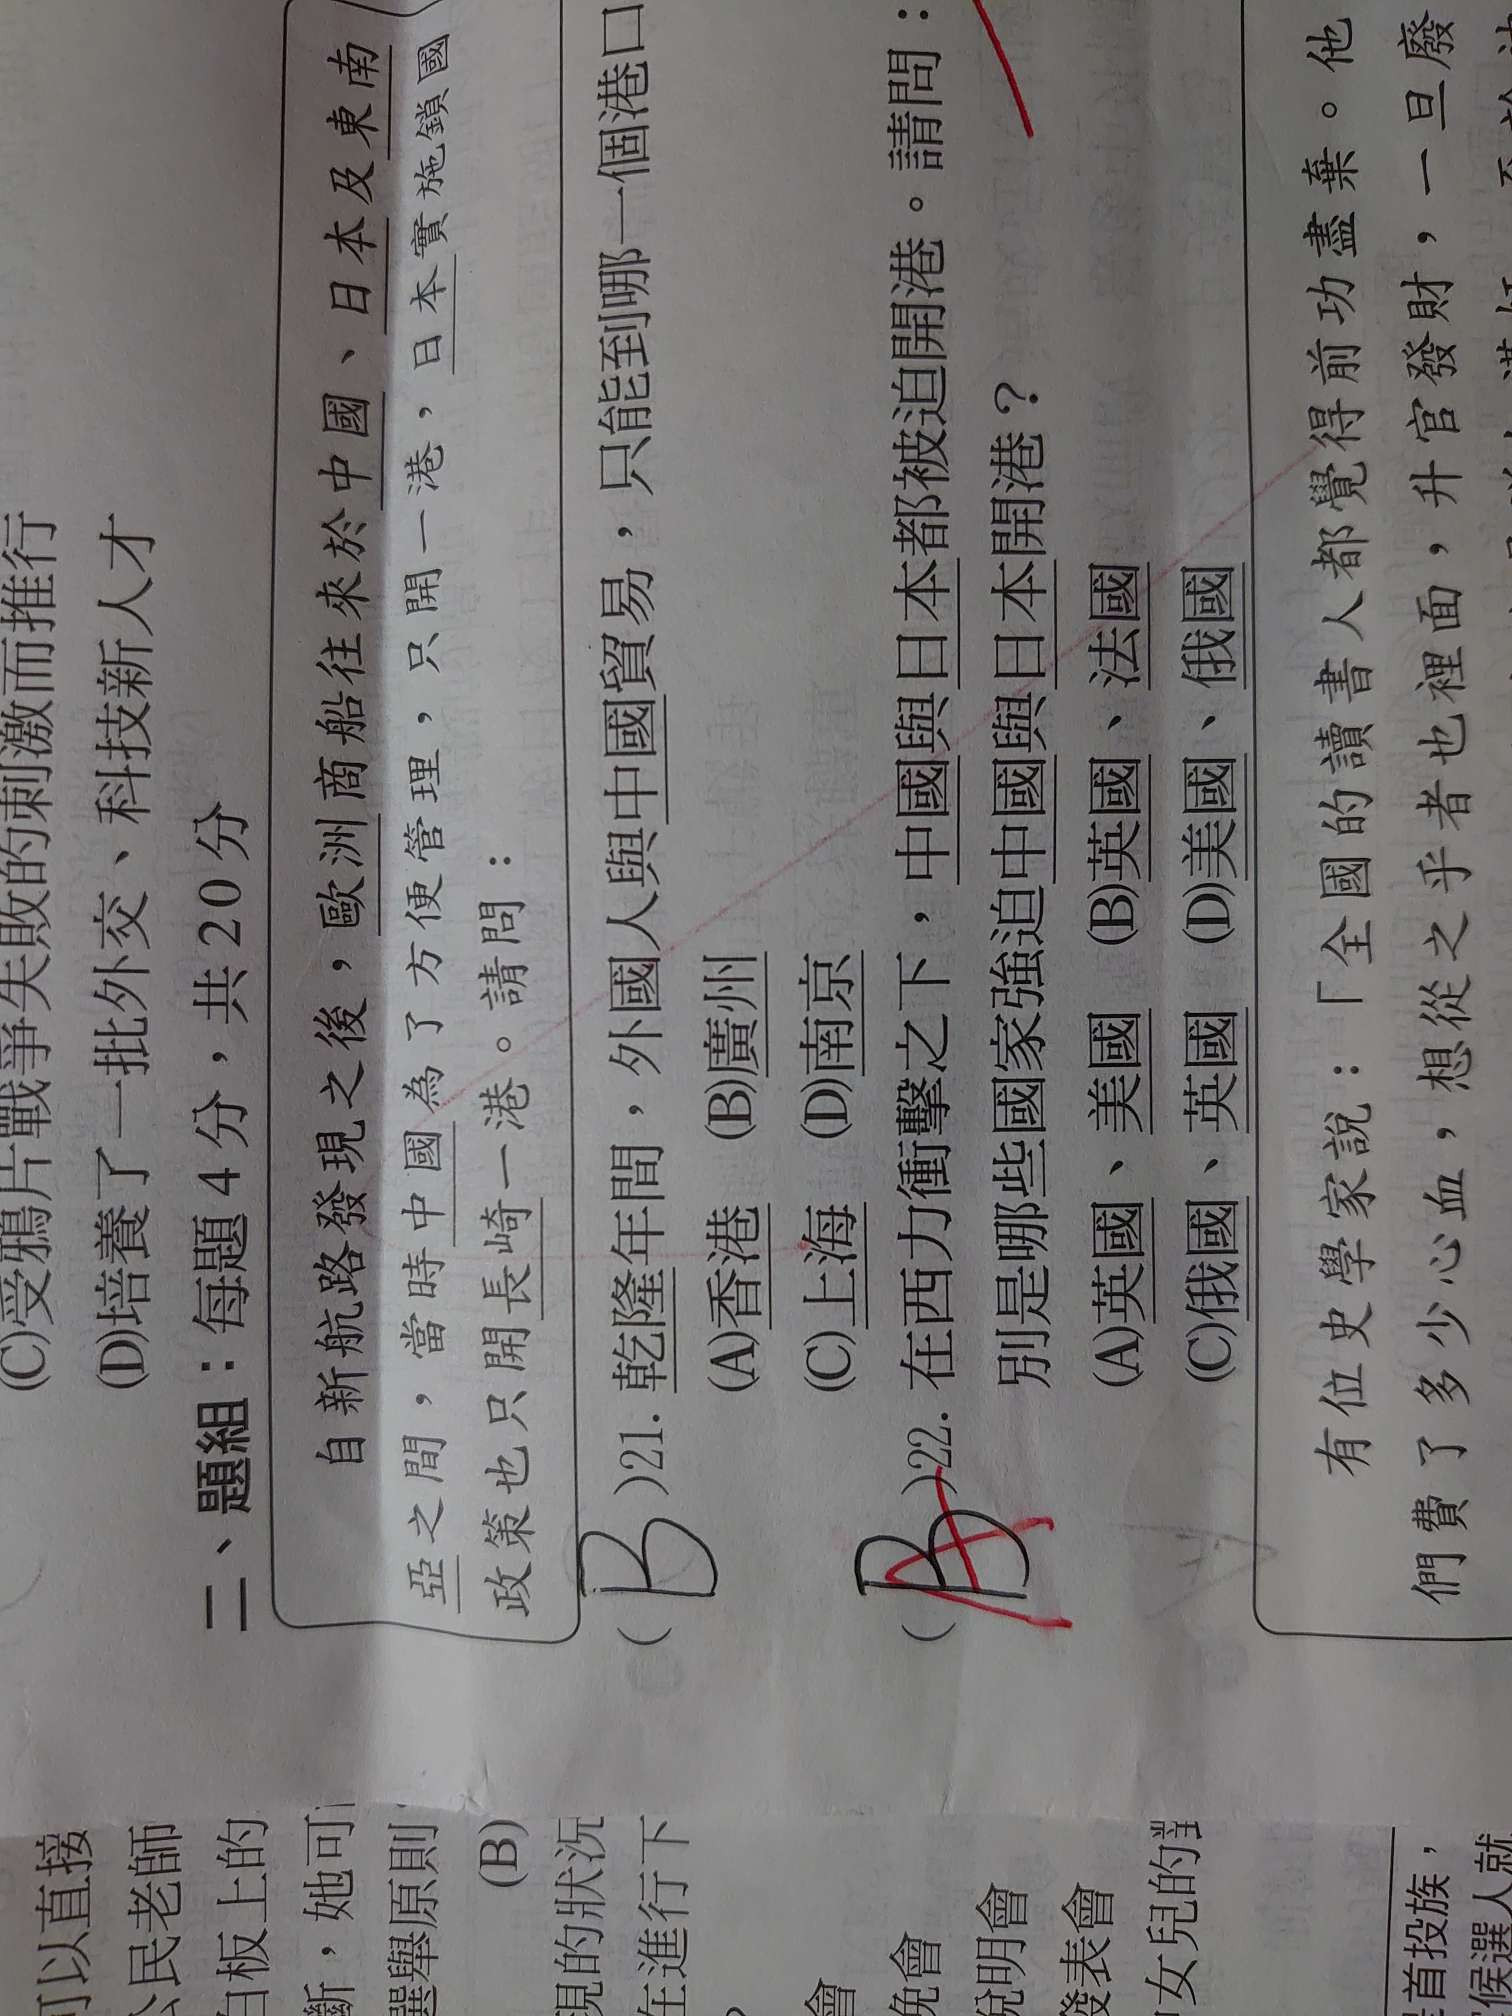 (C)受鴉片戰爭失敗的刺激而推行
(D)培養了一批外交、科技新人才
二、題組：每題4分，共20分
自新航路發現之後，歐洲商船往來於中國、日本及東南
亞之間，當時中國為了方便管理，只開一港，日本實施鎖國
政策也只開長崎一港。請問：
(B)21.乾隆年間，外國人與中國貿易，只能到哪一個港口
(A)香港 (B)廣州
(C)上海 (D)南京
(B A)22.在西力衝擊之下，中國與日本都被迫開港。請問：
別是哪些國家強迫中國與日本開港？
(A)英國、美國 (B)英國、法國
(C)俄國、英國 (D)美國、俄國
有位史學家說：「全國的讀書人都覺得前功盡棄。他
們費了多少心血，想從之乎者也裡面，升官發財，一旦廢
可以直接
公民老師
白板上的
斷，她可
選舉原則
(B)
現的狀況
在進行下
會
晚會
說明會
發表會
女兒的
首投族，
候選人就